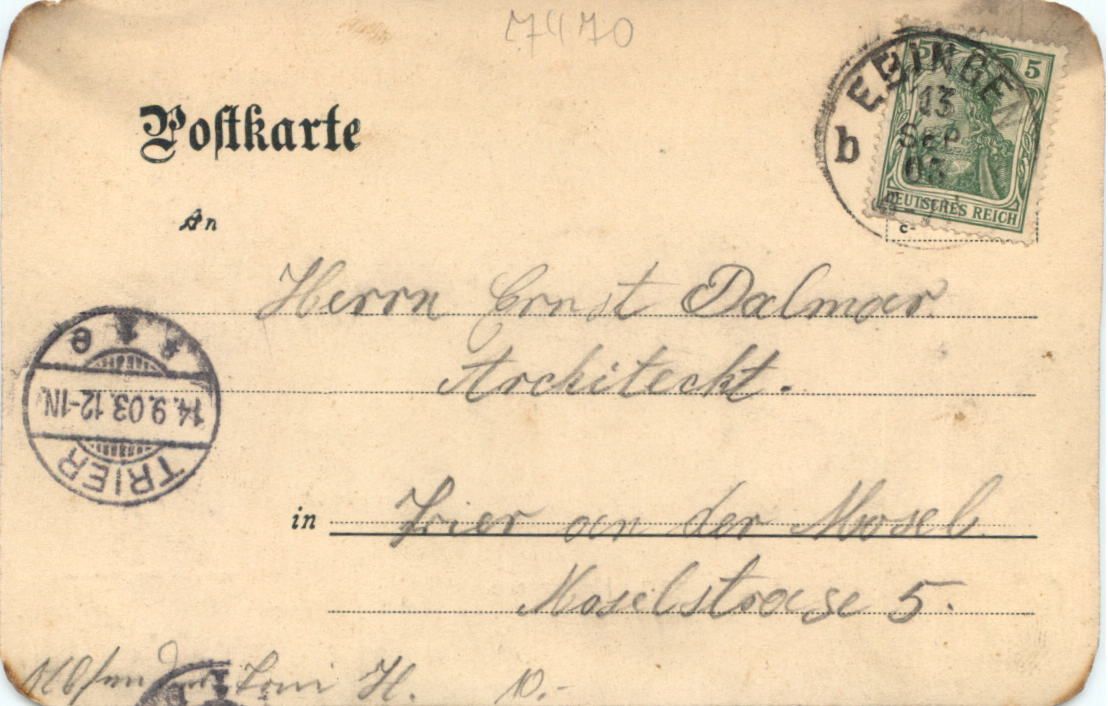 7470
5 5
EBINGEN
13
SEP
03
b
DEUTSCHES REICH
Postkarte
An
Herrn Ernst Dalmar.
Architeckt.
TRIER
14.9.03.12-1N.
* * e
in Trier an der Mosel.
Moselstrase 5.
Absender Toni H. 10.-